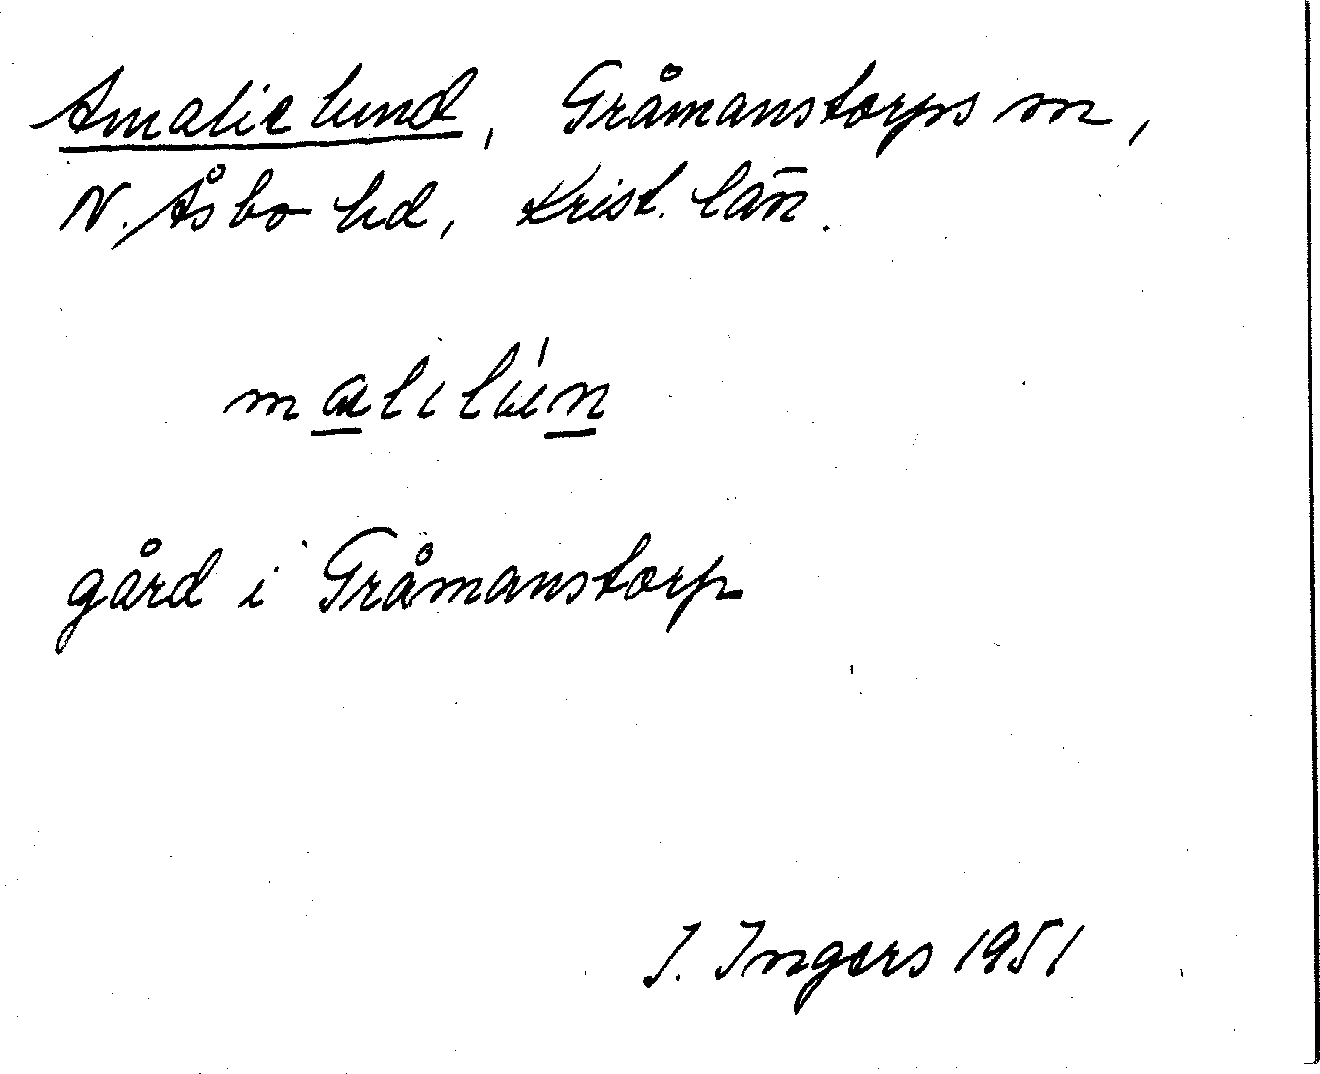 Amalielund, Gråmanstorps sn,
N. Åsbo hd, Krist. län.
malilún
gård i Gråmanstorp
I. Ingers 1951